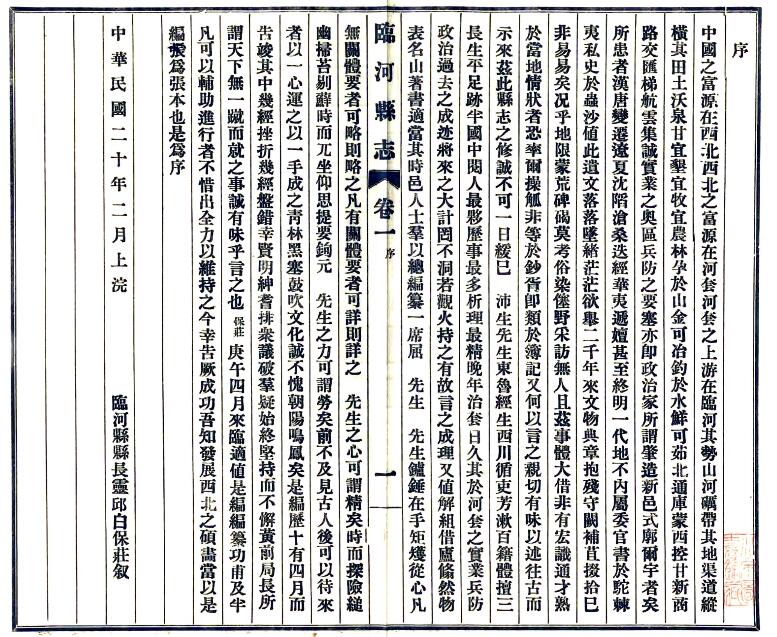 序
中國之富源在西北西北之富源在河套河套之上游在臨河其勢山河礪帶其地渠道縱
橫其田土沃泉甘宜墾宜牧宜農林孕於山金可冶鈞於水鮮可茹北通庫蒙西控甘新商
路交匯梯航雲集誠實業之奥區兵防之要塞亦卽政治家所謂肇造新邑式廓爾宇者矣
所患者漢唐變遷遼夏沈陷滄桑迭經華夷遞嬗甚至終明一代地不内屬委官書於駝棘
夷私史於蟲沙値此遺文落落墜緒茫茫欲舉二千年來文物典章抱殘守闕補苴掇拾巳
非易易矣况乎地限蒙荒碑碣莫考俗染傖野采訪無人且茲事體大借非有宏識通才熟
於當地情狀者恐率爾操觚非等於鈔胥卽類於簿記又何以言之親切有味以述往古而
示來茲此縣志之修誠不可一日緩巳　沛生先生東魯經生西川循吏芳漱百籍體擅三
長生平足跡半國中閱人最夥歷事最多析理最精晚年治套日久其於河套之實業兵防
政治過去之成迹將來之大計罔不洞若觀火持之有故言之成理又値解組借廬翛然物
表名山著書適當其時邑人士羣以總編纂一席屈　先生　先生鑪錘在手矩矱從心凡
臨河縣志　卷一　序　一
無關體要者可略則略之凡有關體要者可詳則詳之　先生之心可謂精矣時而探險縋
幽掃苔剔蘚時而兀坐仰思提要鉤元　先生之力可謂勞矣前不及見古人後可以待來
者以一心運之以一手成之靑林黑塞鼓吹文化誠不愧朝陽鳴鳳矣是編歷十有四月而
告竣其中幾經挫折幾經盤錯幸賢明紳耆排衆議破羣疑始終堅持而不懈黃前局長所
謂天下無一蹴而就之事誠有味乎言之也　保莊　庚午四月來臨適値是編編纂功甫及半
凡可以輔助進行者不惜出全力以維持之今幸告厥成功吾知發展西北之碩畫當以是
編爲張本也是爲序
中華民國二十年二月上浣　臨河縣縣長靈邱白保莊叙